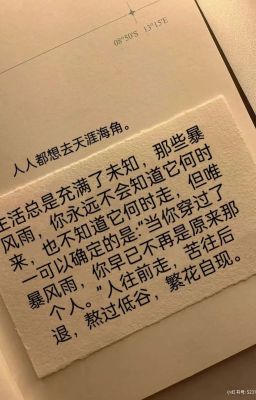 08°50'S 13°15'E
人人都想去天涯海角。
生活总是充满了未知，那些暴
风雨，你永远不会知道它何时
来，也不知道它何时走，但唯
一可以确定的是:“当你穿过了
暴风雨，你早已不再是原来那
个人。”人往前走，苦往后
退，熬过低谷，繁花自现。